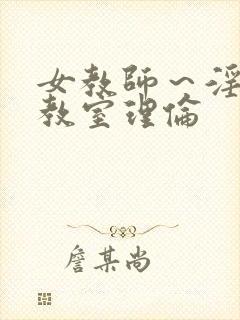 女教師～淫
教室理倫
詹某尚